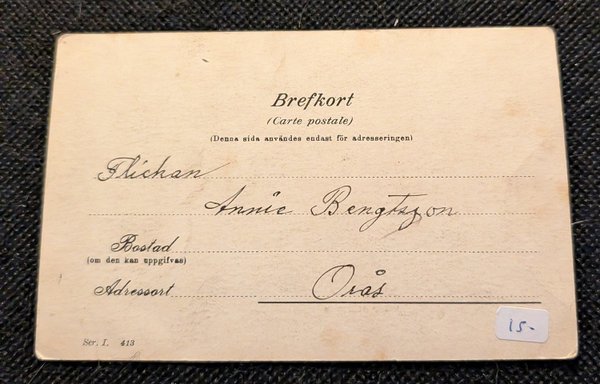 Brefkort
(Carte postale)
(Denna sida användes endast för adresseringen)
Flickan
Annie Bengtson
Bostad
(om den kan uppgifvas)
Adressort Orås
15-
Ser. I. 413